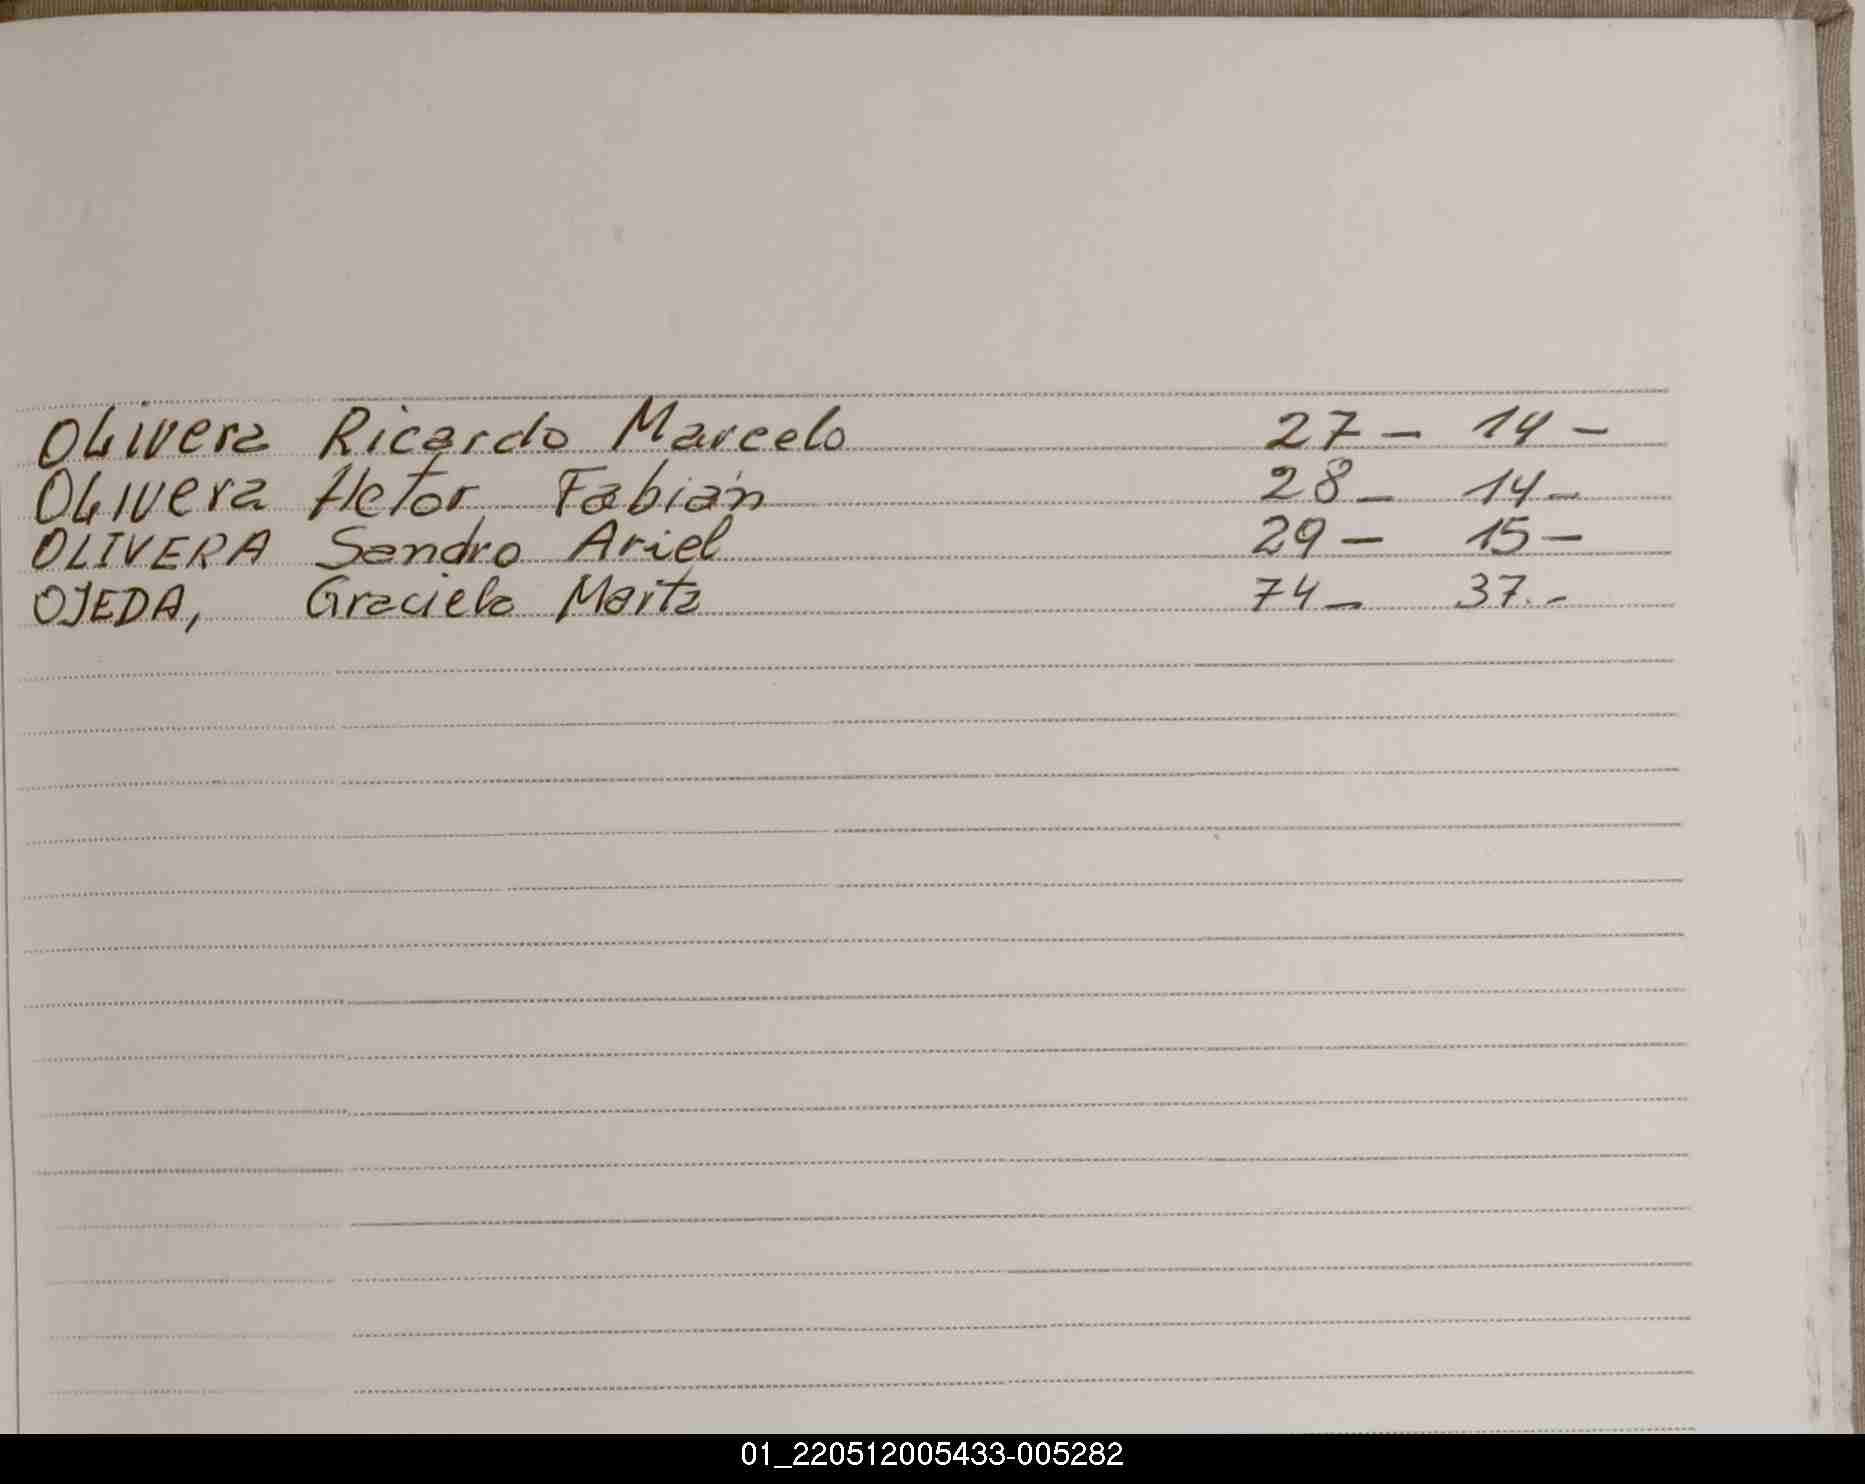 Olivera Ricardo Marcelo 27 - 14 -
Olivera Hetor Fabián 28 - 14 -
OLIVERA Sandro Ariel 29 - 15 -
OJEDA, Graciela Marta 74 - 37.-
01_220512005433-005282